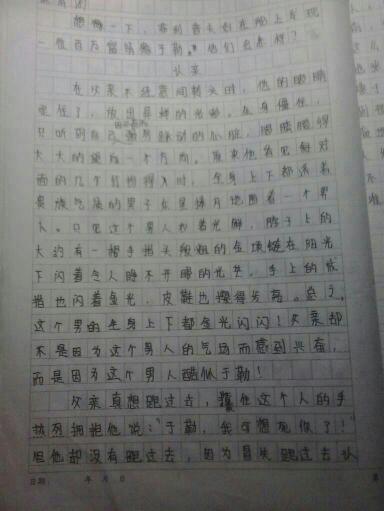 想像一下，菲利普夫妇在船上发现
一位百万富翁像于勒。他们会怎样？
认亲
在父亲不经意间转头时，他的眼睛
定住了，放出异样的光彩。全身僵住，
只听到自己跳动的心脏，眼睛瞪得
大大的望向一个方向。原来他看见对
面的几个打扮得入时，全身上下都透着
贵族气质的男子众星捧月地围着一个男
人。只见这个男人衣着光鲜，脖子上的
大约有一根手指头般粗的金项链在阳光
下闪着令人睁不开眼的光芒。手上的戒
指也闪着金光，皮鞋也擦得发亮。总之，
这个男的全身上下都金光闪闪！父亲却
不是因为这个男人的气场而感到兴奋，
而是因为这个男人酷似于勒！
父亲真想跑过去，握住这个人的手
热烈拥抱他说：“于勒，我可想死你了！”
但他却没有跑过去，因为冒失跑过去认
日期 年 月 日